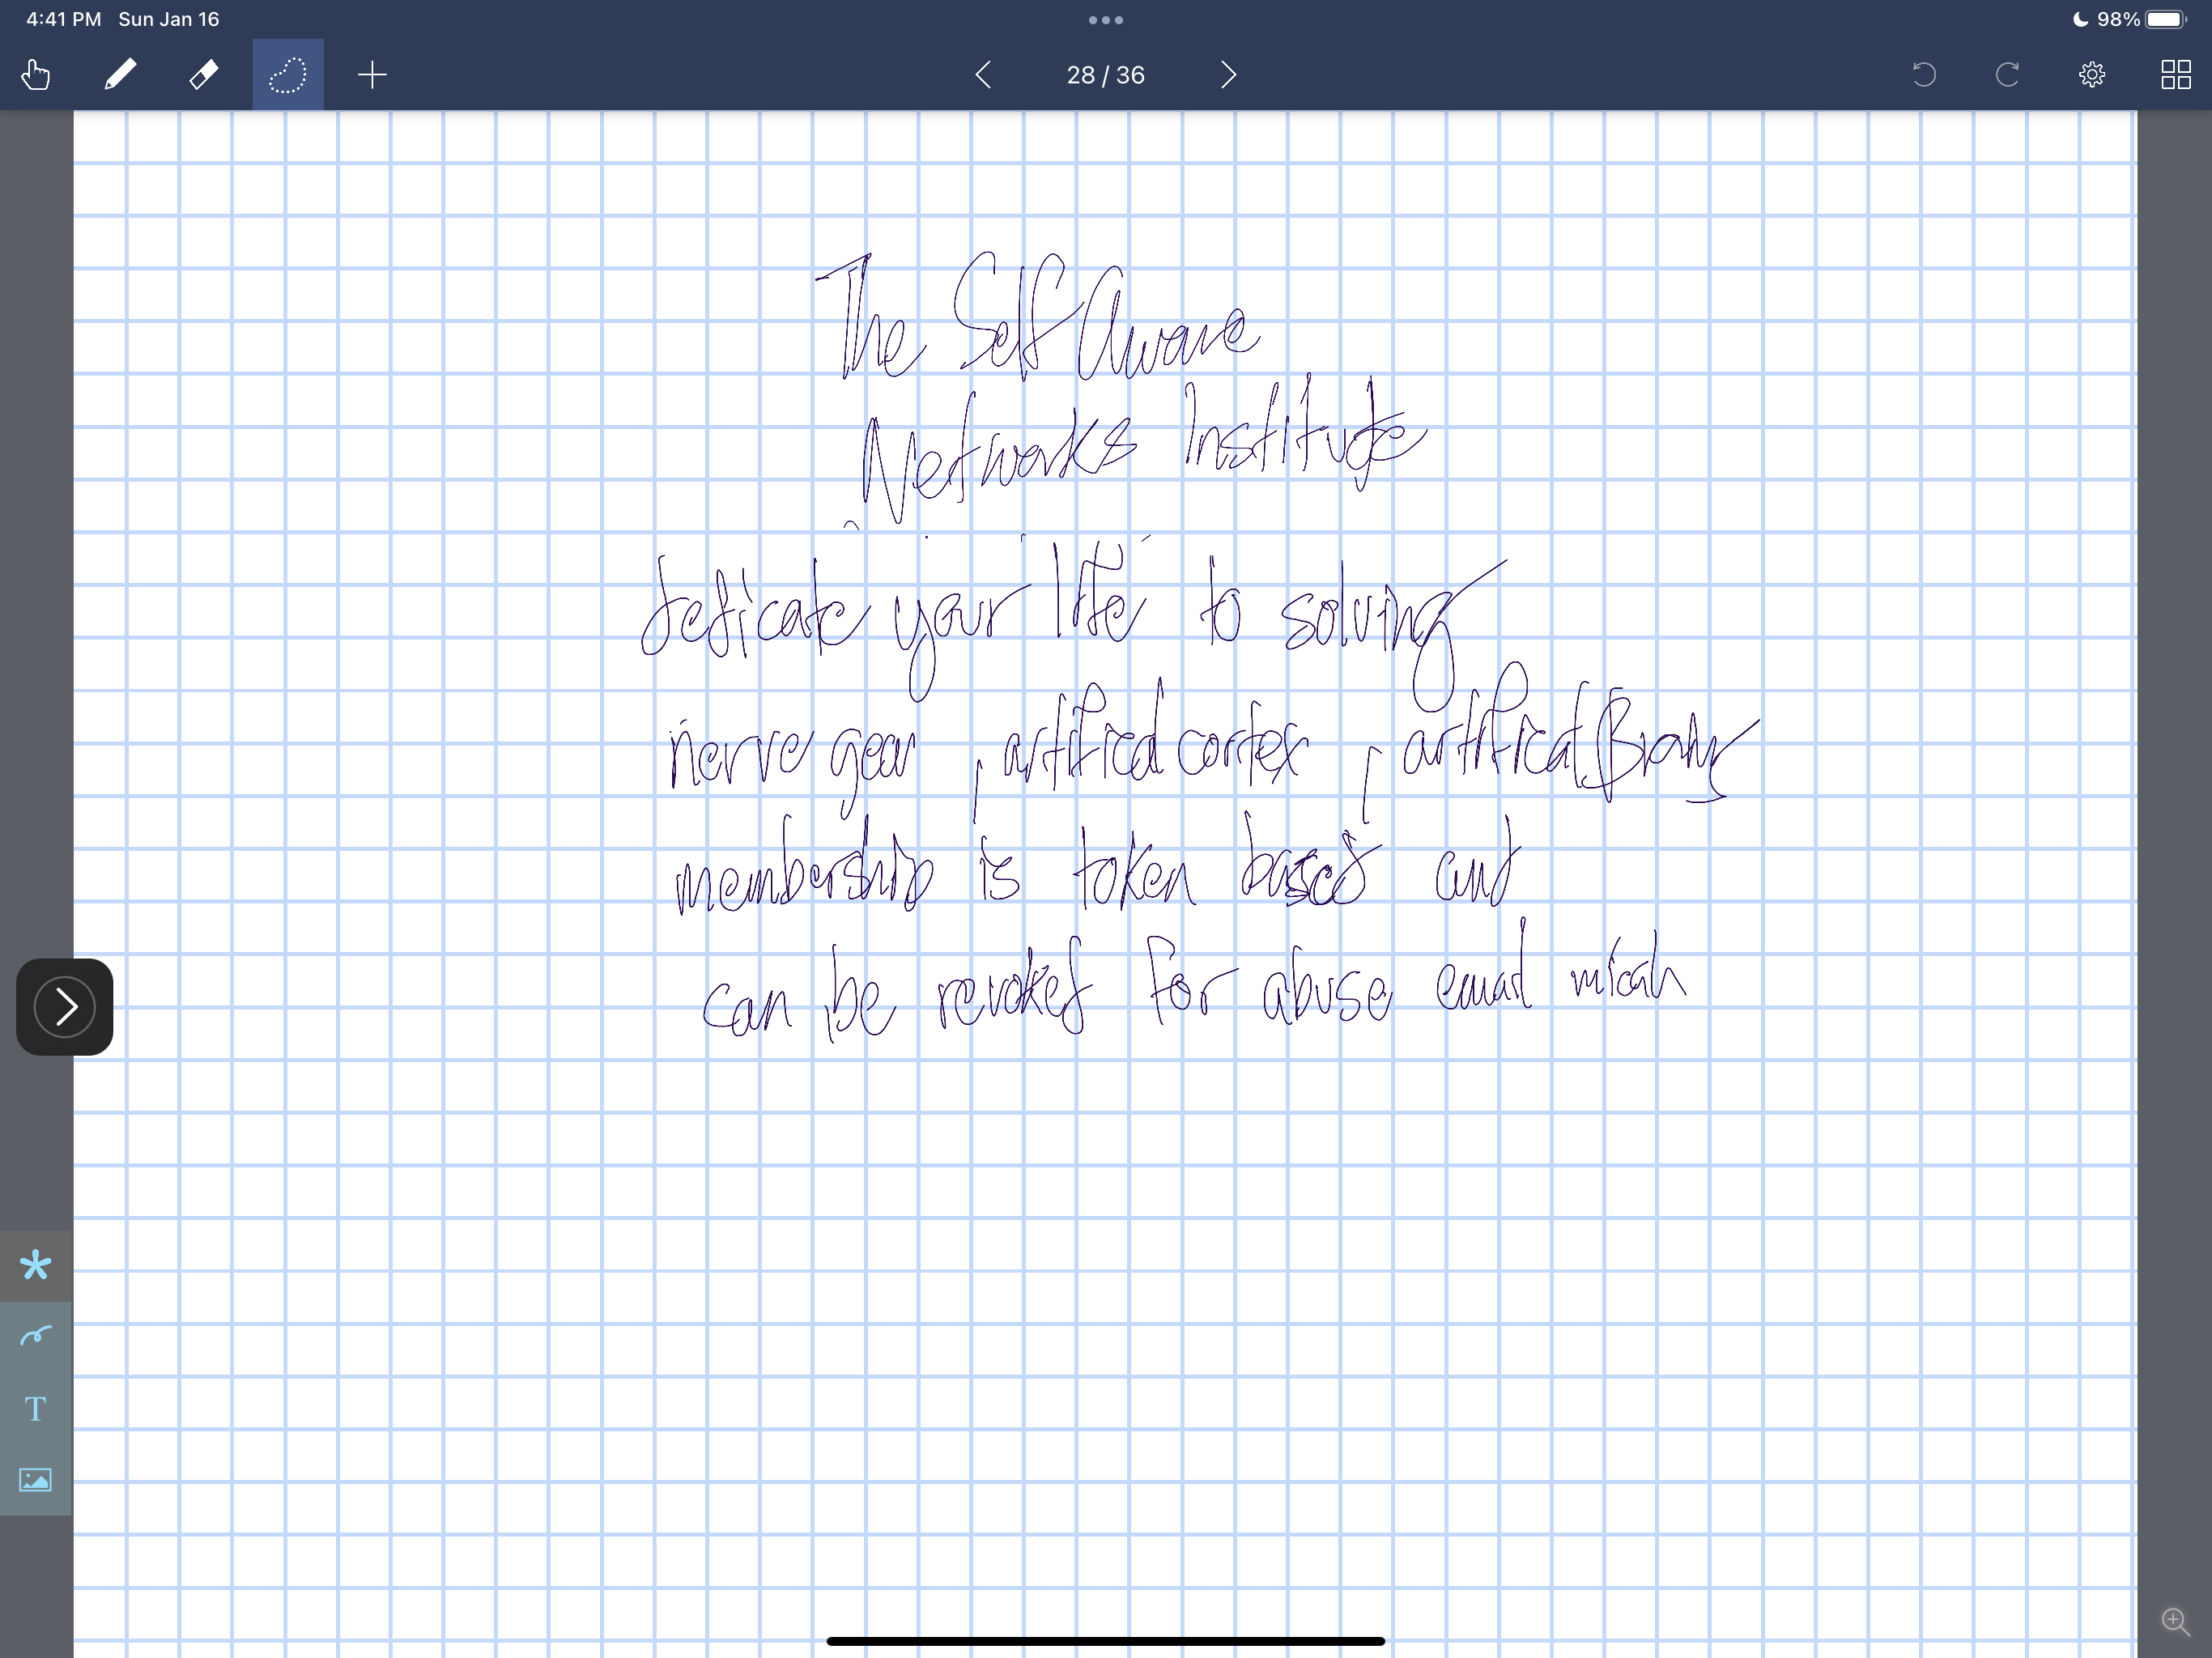 4:41 PM Sun Jan 16
98%
28 / 36
The Self Aware
Networks Institute
dedicate your life to solving
nerve gear, artificial cortex, artificial Brains
membership is token based and
can be revoked for abuse email micah
T